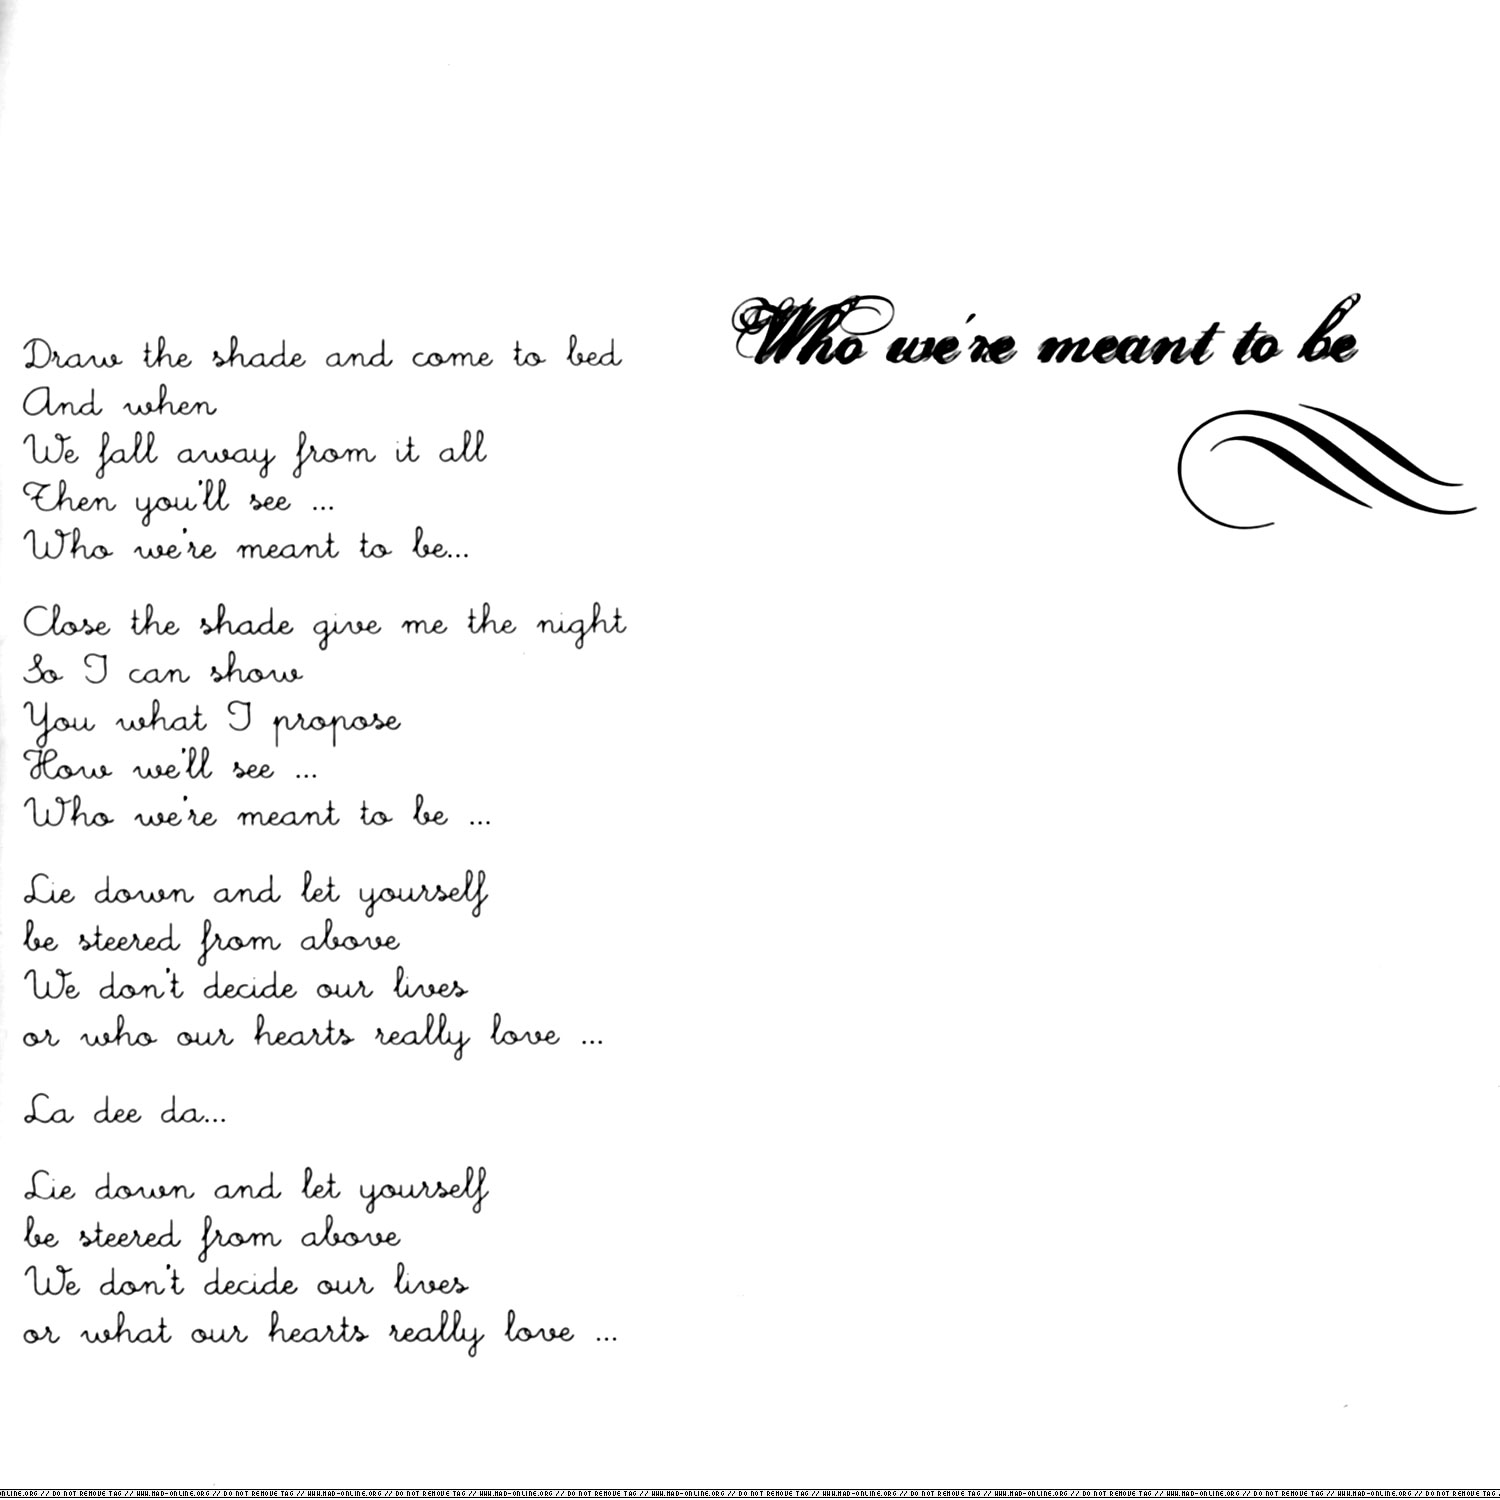 Who we're meant to be
Draw the shade and come to bed
And when
We fall away from it all
Then you'll see ...
Who we're meant to be...
Close the shade give me the night
So I can show
You what I propose
How we'll see ...
Who we're meant to be ...
Lie down and let yourself
be steered from above
We don't decide our lives
or who our hearts really love ...
La dee da...
Lie down and let yourself
be steered from above
We don't decide our lives
or what our hearts really love ...
ONLINE.ORG // DO NOT REMOVE TAG // WWW.MAD-ONLINE.ORG // DO NOT REMOVE TAG // WWW.MAD-ONLINE.ORG // DO NOT REMOVE TAG // WWW.MAD-ONLINE.ORG // DO NOT REMOVE TAG // WWW.MAD-ONLINE.ORG // DO NOT REMOVE TAG // WWW.MAD-ONLINE.ORG // DO NOT REMOVE TAG // WWW.MAD-ONLINE.ORG // DO NOT REMOVE TAG // WWW.MAD-ONLINE.ORG // DO NOT REMOVE TAG // WWW.MAD-ONLINE.ORG // DO NOT REMOVE TAG